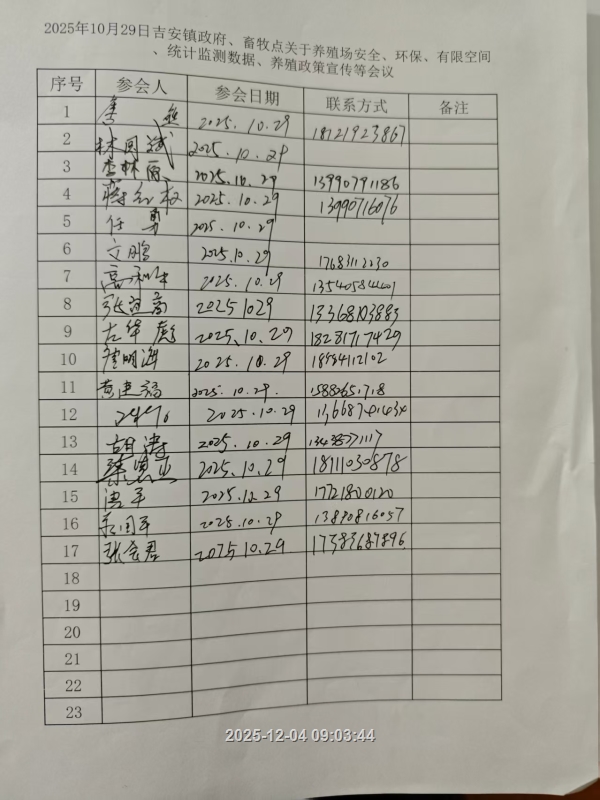 2025年10月29日吉安镇政府、畜牧点关于养殖场安全、环保、有限空间
、统计监测数据、养殖政策宣传等会议
序号 参会人 参会日期 联系方式 备注
1 2025.10.29 18121923867
2 林国斌 2025.10.29
3 李林 2025.10.29 13990791186
4 蒋红权 2025.10.29 13990716076
5 任勇 2025.10.29
6 文鹏 2025.10.29 17683112230
7 2025.10.29 13540584401
8 2025 1029 13368103883
9 左华彪 2025.10.29 18281717429
10 唐明海 2025.10.29 18984112102
11 黄建福 2025.10.29.
12 2025.10.29
13 胡涛 2025.10.29
14 2025.10.29 18111030878
15 唐军 2025.12.29 17721800120
16 2025.10.29 13890816057
17 张会君 2025 10.29 17383687896
18
19
20
21
22
23
2025-12-04 09:03:44